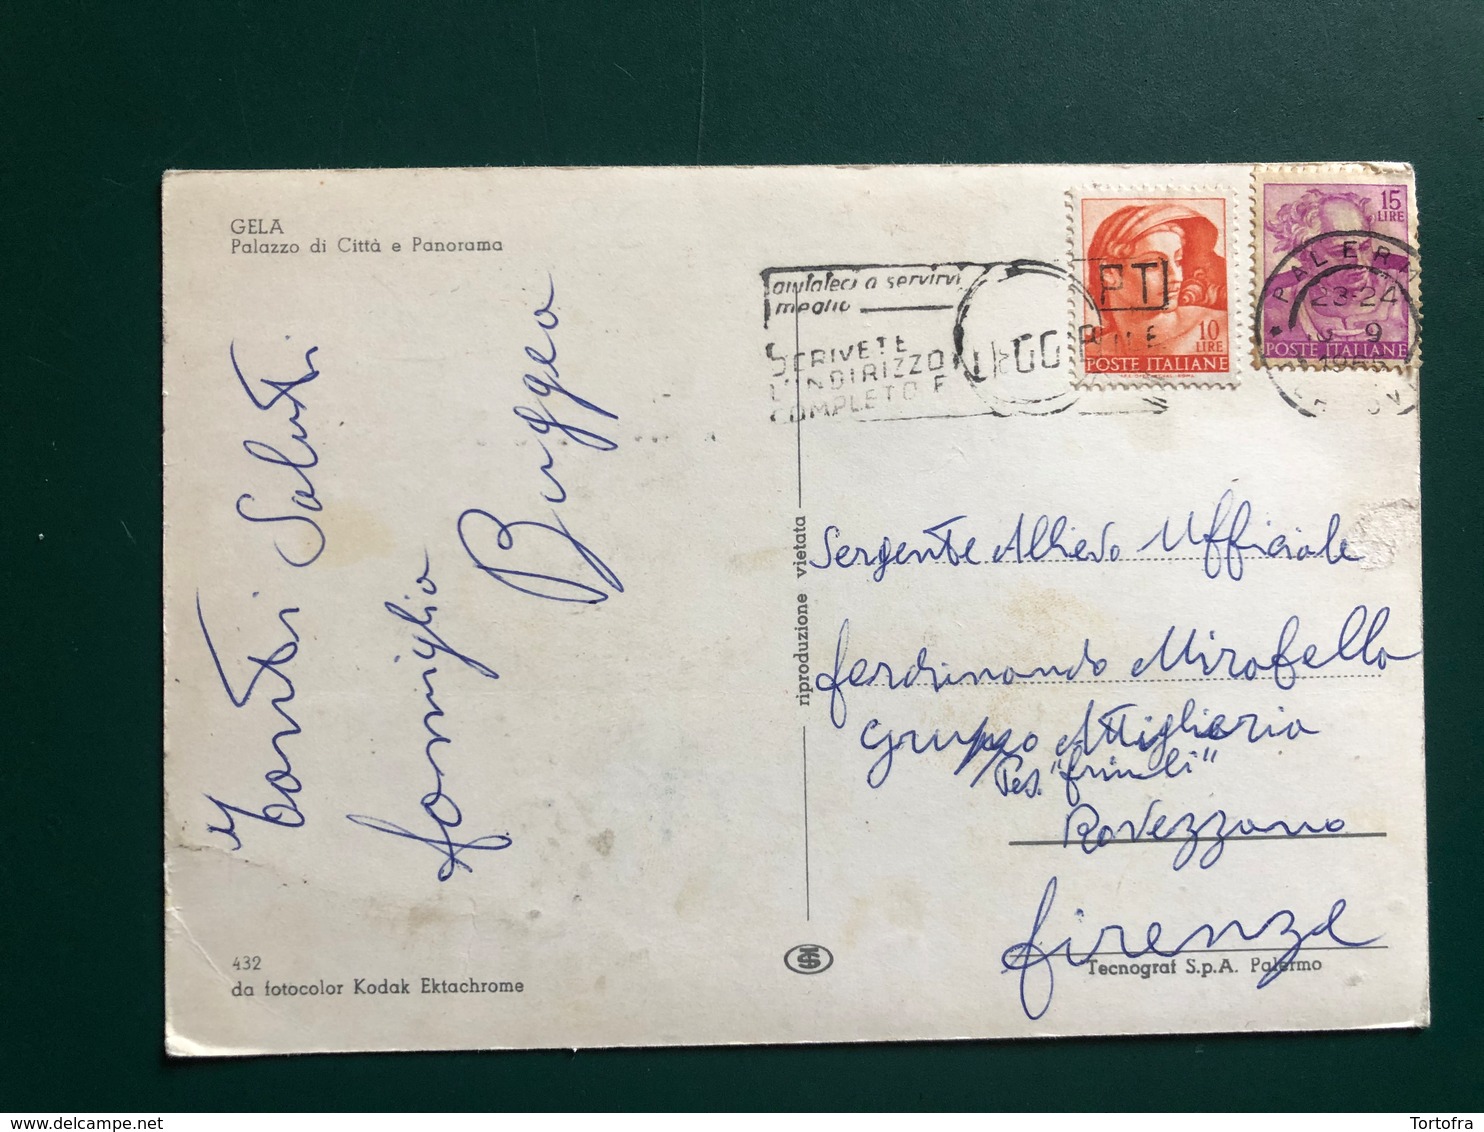 GELA
Palazzo di Città e Panorama
Tanti Saluti
famiglia
Buggea
432
da fotocolor Kodak Ektachrome
riproduzione vietata
aiutateci a servirvi
meglio
SCRIVETE
L'INDIRIZZO
COMPLETO E
LEGGIBILE
PT
10
LIRE
POSTE ITALIANE
15
LIRE
POSTE ITALIANE
PALERM
23-24
9
Sergente Allievo Ufficiale
Ferdinando Mirabella
Gruppo Artiglieria
Pes. "friuli"
Rovezzano
firenze
Tecnograf S.p.A. Palermo
Tortofra